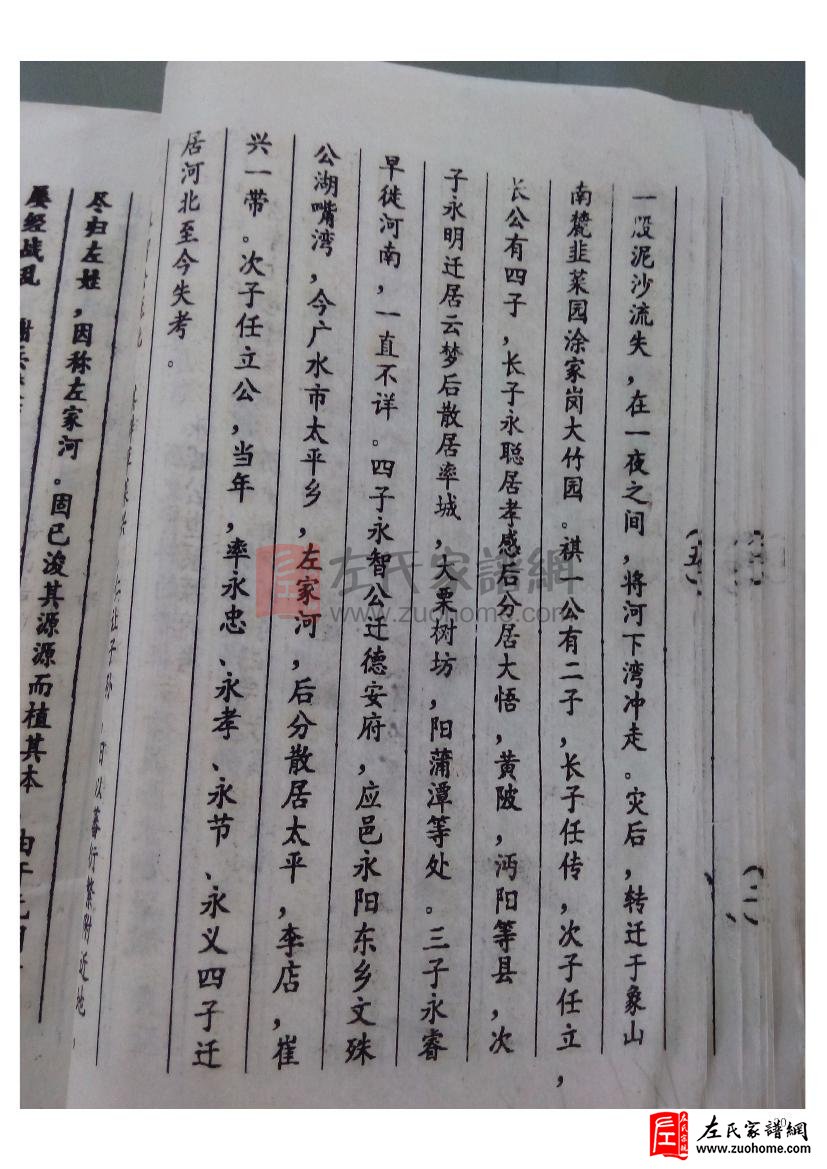 一股泥沙流失，在一夜之间，将河下湾冲走。灾后，转迁于象山
南麓韭菜园涂家岗大竹园。祺一公有二子，长子任传，次子任立，
长公有四子，长子永聪居孝感后分居大悟，黄陂，沔阳等县，次
子永明迁居云梦后散居率城，大栗树坊，阳蒲潭等处。三子永睿
早徙河南，一直不详。四子永智公迁德安府，应邑永阳东乡文殊
公湖嘴湾，今广水市太平乡，左家河，后分散居太平，李店，崔
兴一带。次子任立公，当年，率永忠、永孝、永节、永义四子迁
居河北至今失考。
子孙，日以蕃衍繁附近地，
尽归左姓，因称左家河。固已浚其源源而植其本
屡经战乱
(五)
(二)
左氏家譜網
www.zuohome.com
左氏家譜網
www.zuohome.com